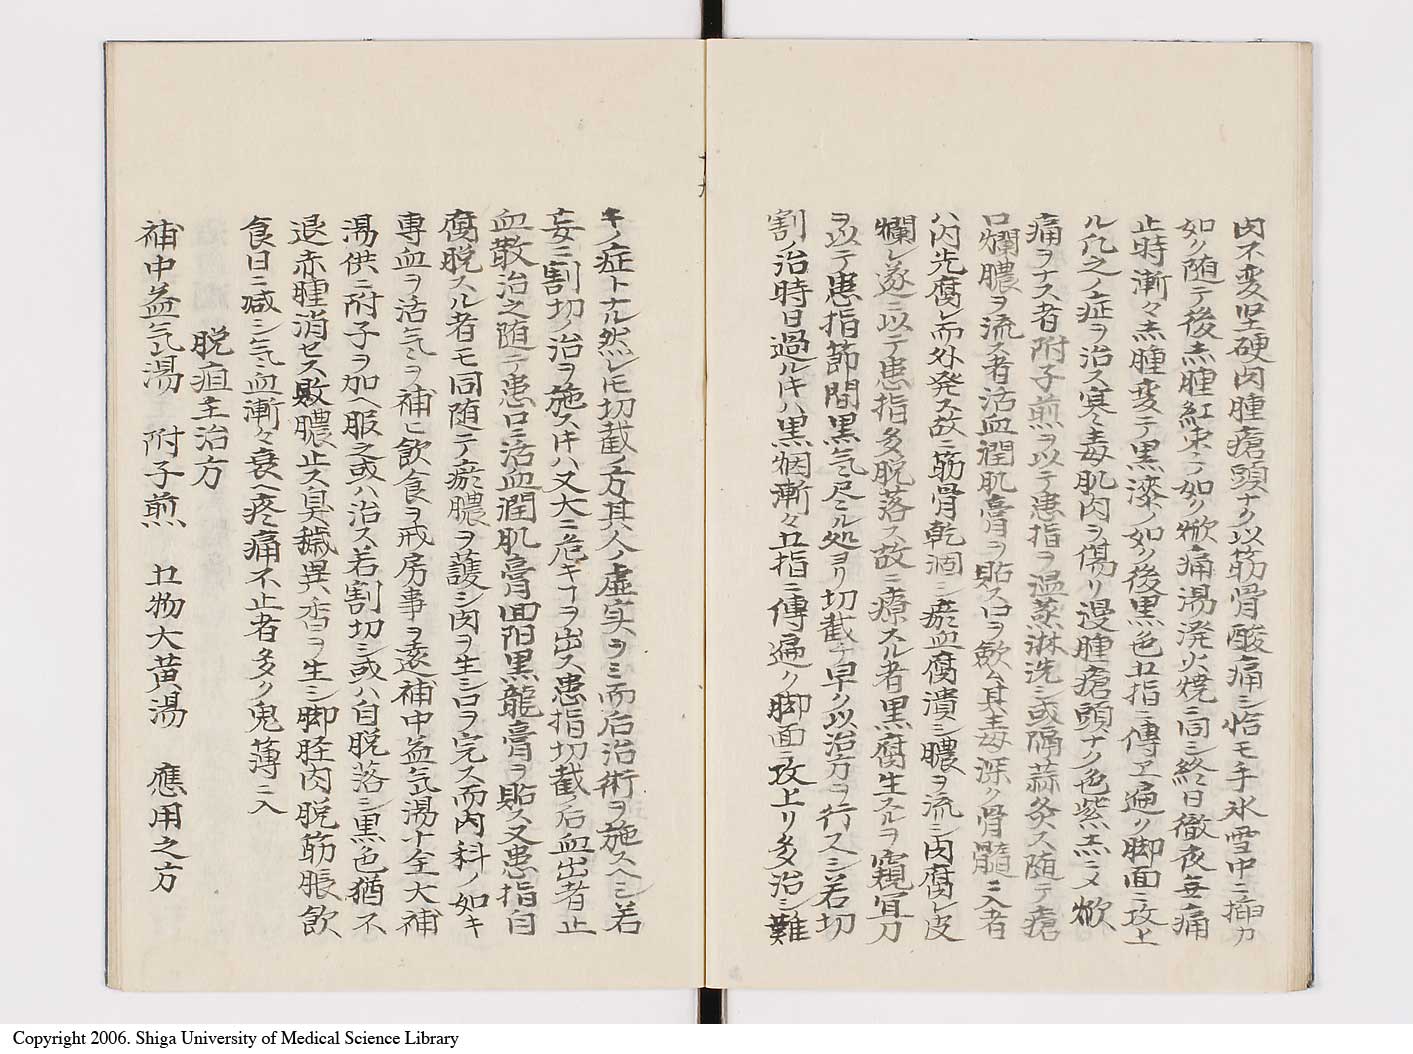 肉不変坚硬肉腫瘡頭ナク以筋骨酸痛シ恰モ手氷雪中ニ挿カ
如ク随テ後焮腫紅束ニテ如ク焮痛湯溌火焼ニ同シ終日徹夜無痛
止時漸々焮腫変テ黒漆ノ如ク後黒色五指ニ傳ヱ遍ク脚面ニ攻上
ル凡之ノ症ヲ治ス寒冬毒肌肉ヲ傷リ漫腫瘡頭ナク色紫黒ニメ焮
痛ヲナス者附子煎ヲ以テ患指ヲ温蒸淋洗シ或隔蒜灸ス随テ瘡
口爛膿ヲ流ス者活血潤肌膏ヲ貼ス口ヲ歛ム其毒深ク骨髓ニ入者
ハ内先腐レ而外発ス故ニ筋骨乾涸シ瘀血腐潰シ膿ヲ流シ肉腐レ皮
爛レ遂ニ以テ患指多脱落ス故ニ療スル者黒腐生スルヲ窺宜刀
ヲ以テ患指節間黒气尽ル処ヨリ切截テ早ク以治方ヲ行スヘシ若切
割ノ治時日過ルキハ黒烟漸々五指ニ傳遍ク脚面ニ攻上リ多治シ難
キノ症トナル然レモ切截ノ方其人ノ虚実ヲミ而后治術ヲ施スヘシ若
妄ニ割切ノ治ヲ施スキハ又大ニ危キヿヲ出ス患指切截ノ后血出者止
血散治之随テ患口ニ活血潤肌膏回陽黒龍膏ヲ貼ス又患指自
腐脱スル者モ同随テ瘀膿ヲ護シ肉ヲ生シ口ヲ完ス而内科ノ如キ
專血ヲ活气ヲ補ヒ飲食ヲ戒房事ヲ遠補中益气湯十全大補
湯供ニ附子ヲ加ヘ服之或ハ治ス若割切シ或ハ自脱落ニ黒色猶不
退赤腫消セス敗膿止ス臭穢異香ヲ生シ脚胫肉脱筋脹飲
食日ニ减シ气血漸々衰ヘ疼痛不止者多ク鬼薄ニ入
脱疽主治方
補中益气湯　附子煎　五物大黄湯　應用之方
Copyright 2006. Shiga University of Medical Science Library